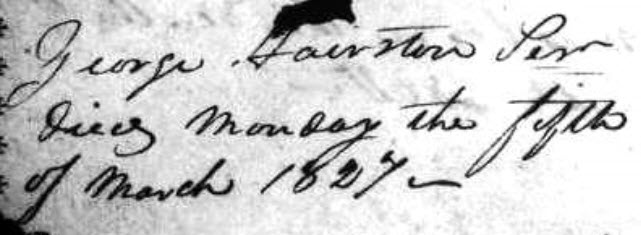 George Hairston Senr
died Monday the fifth
of March 1827–